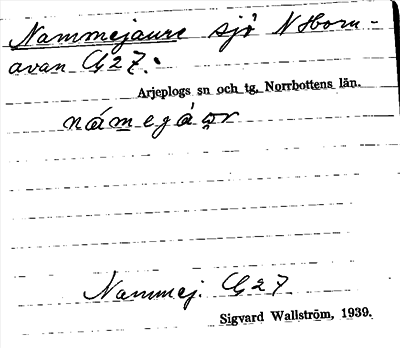 Nammejaure sjö N Horn-
avan G27.
Arjeplogs sn och tg, Norrbottens län.
námegáor
Nammej. G27
Sigvard Wallström, 1939.